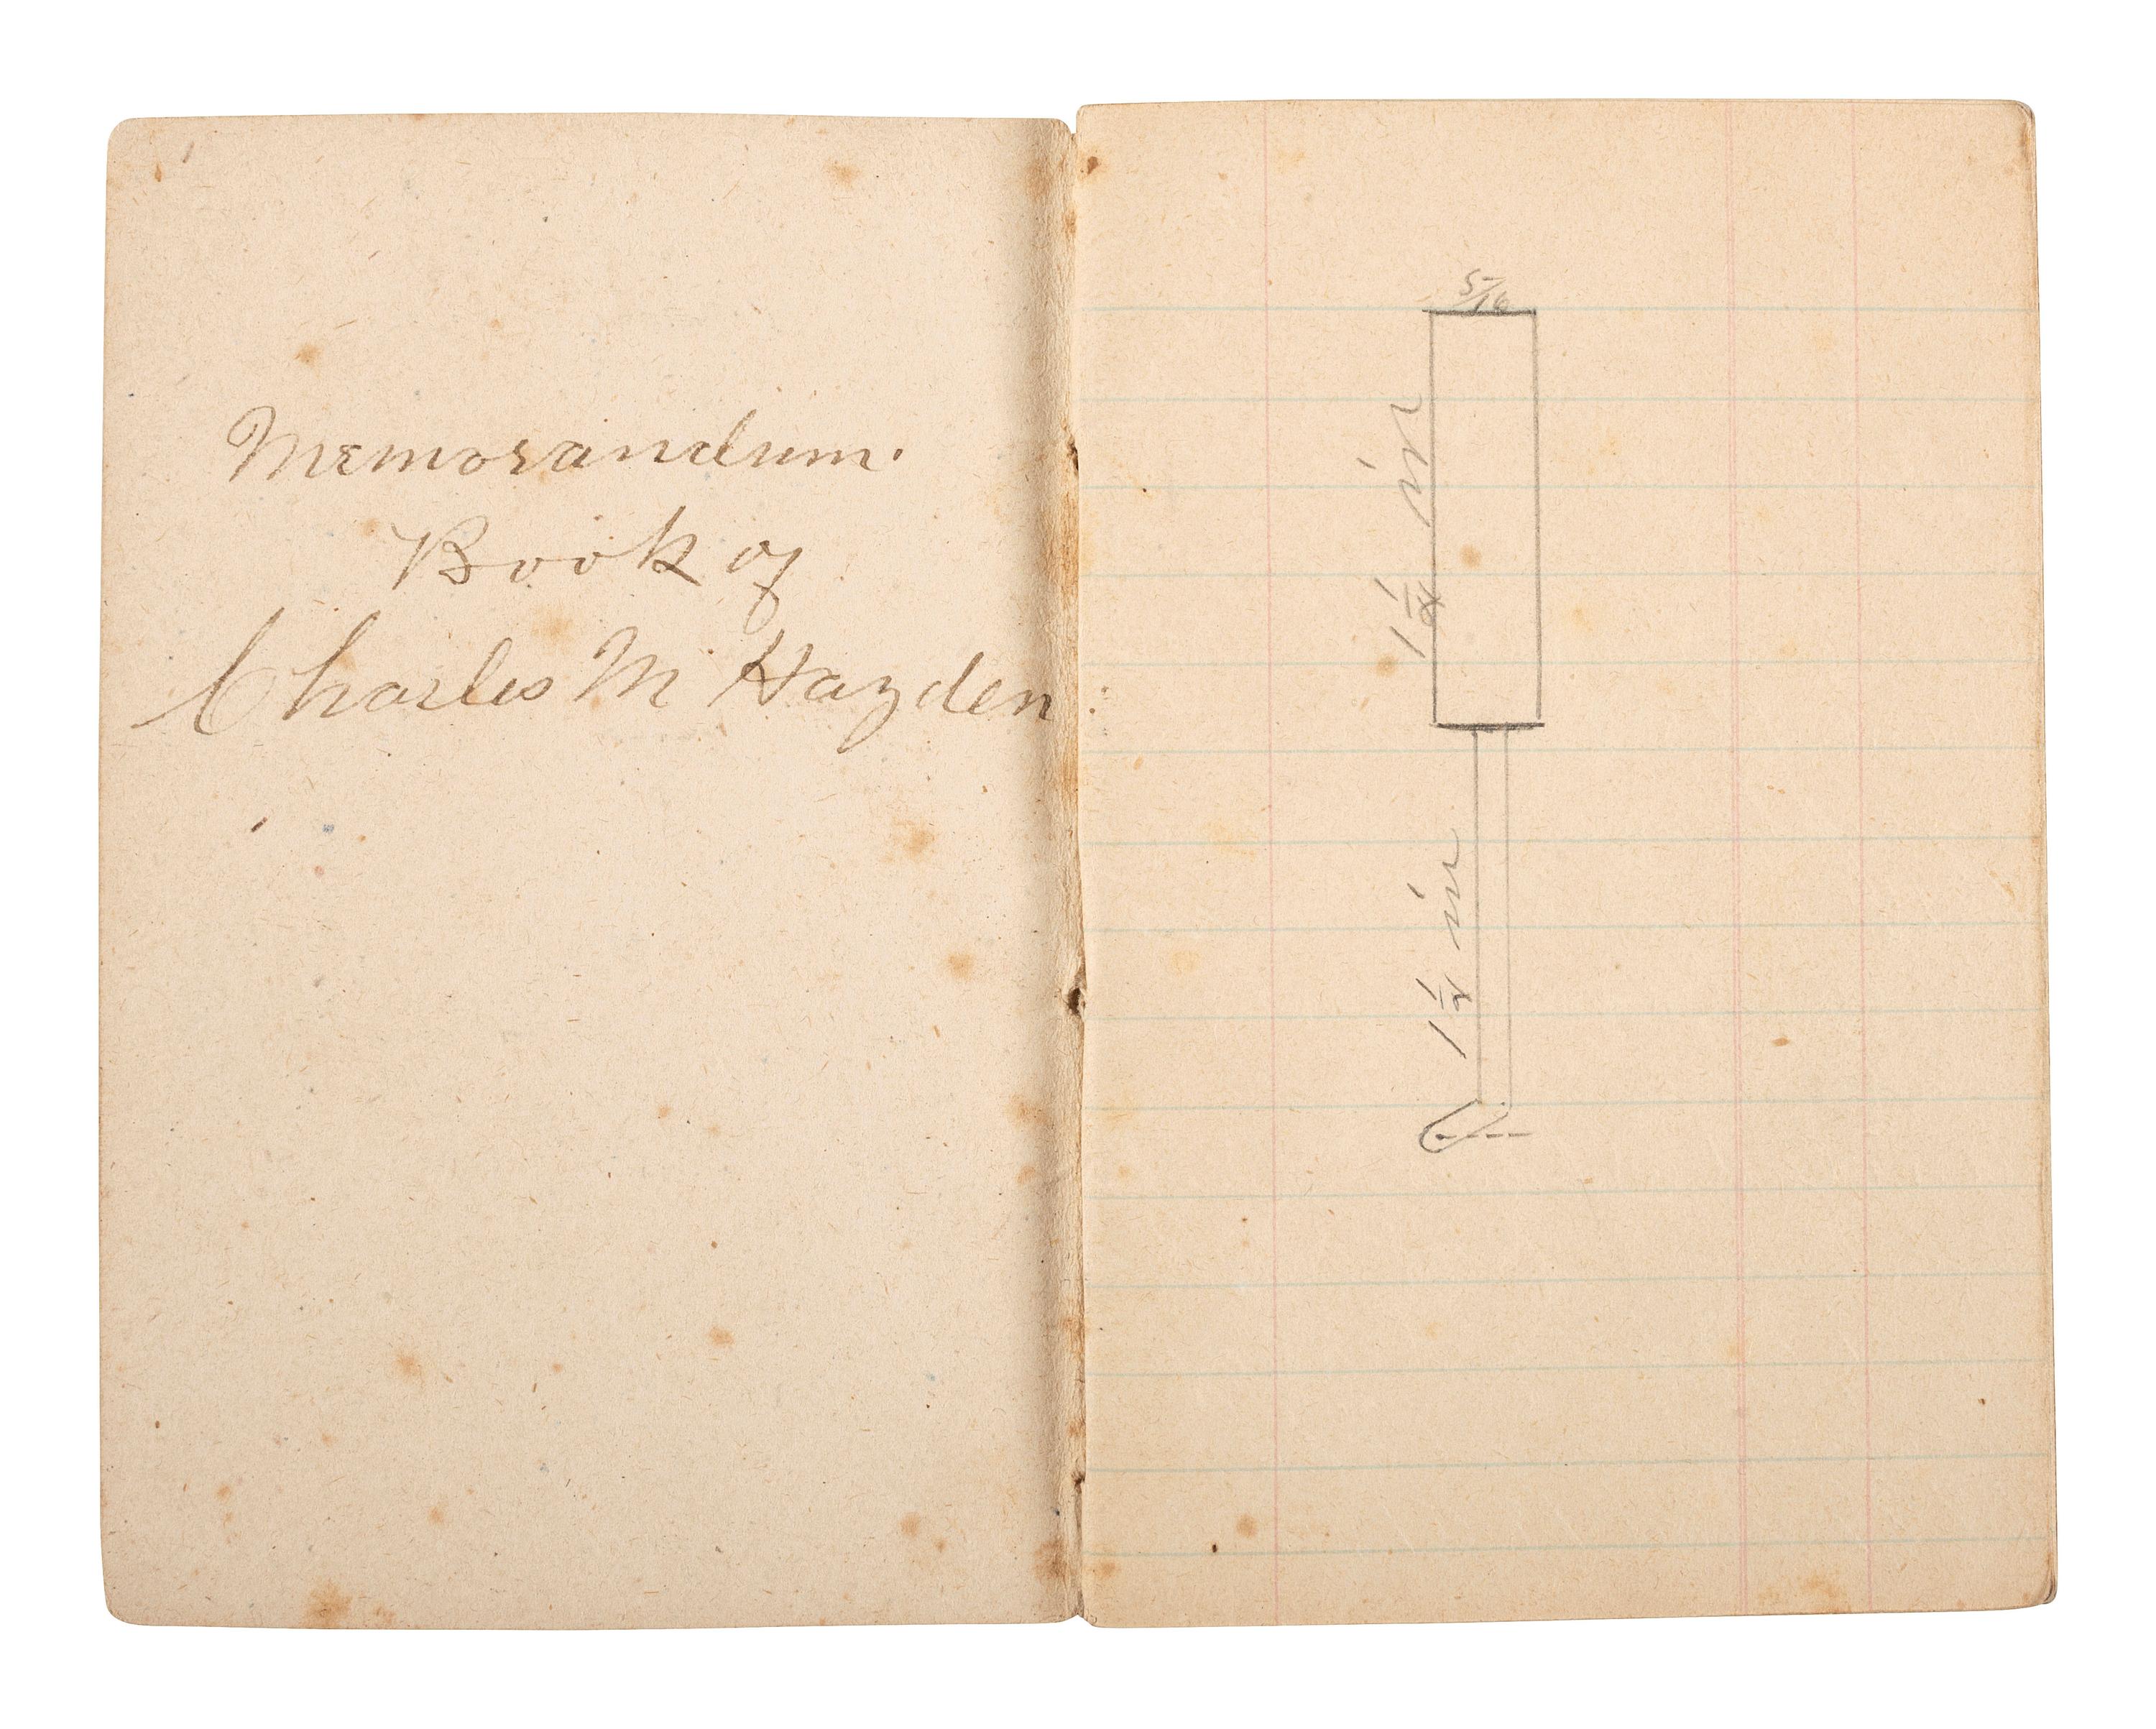 Memorandum.
Book of
Charles M Hayden
5/16
1 1/4 in
1 1/8 in